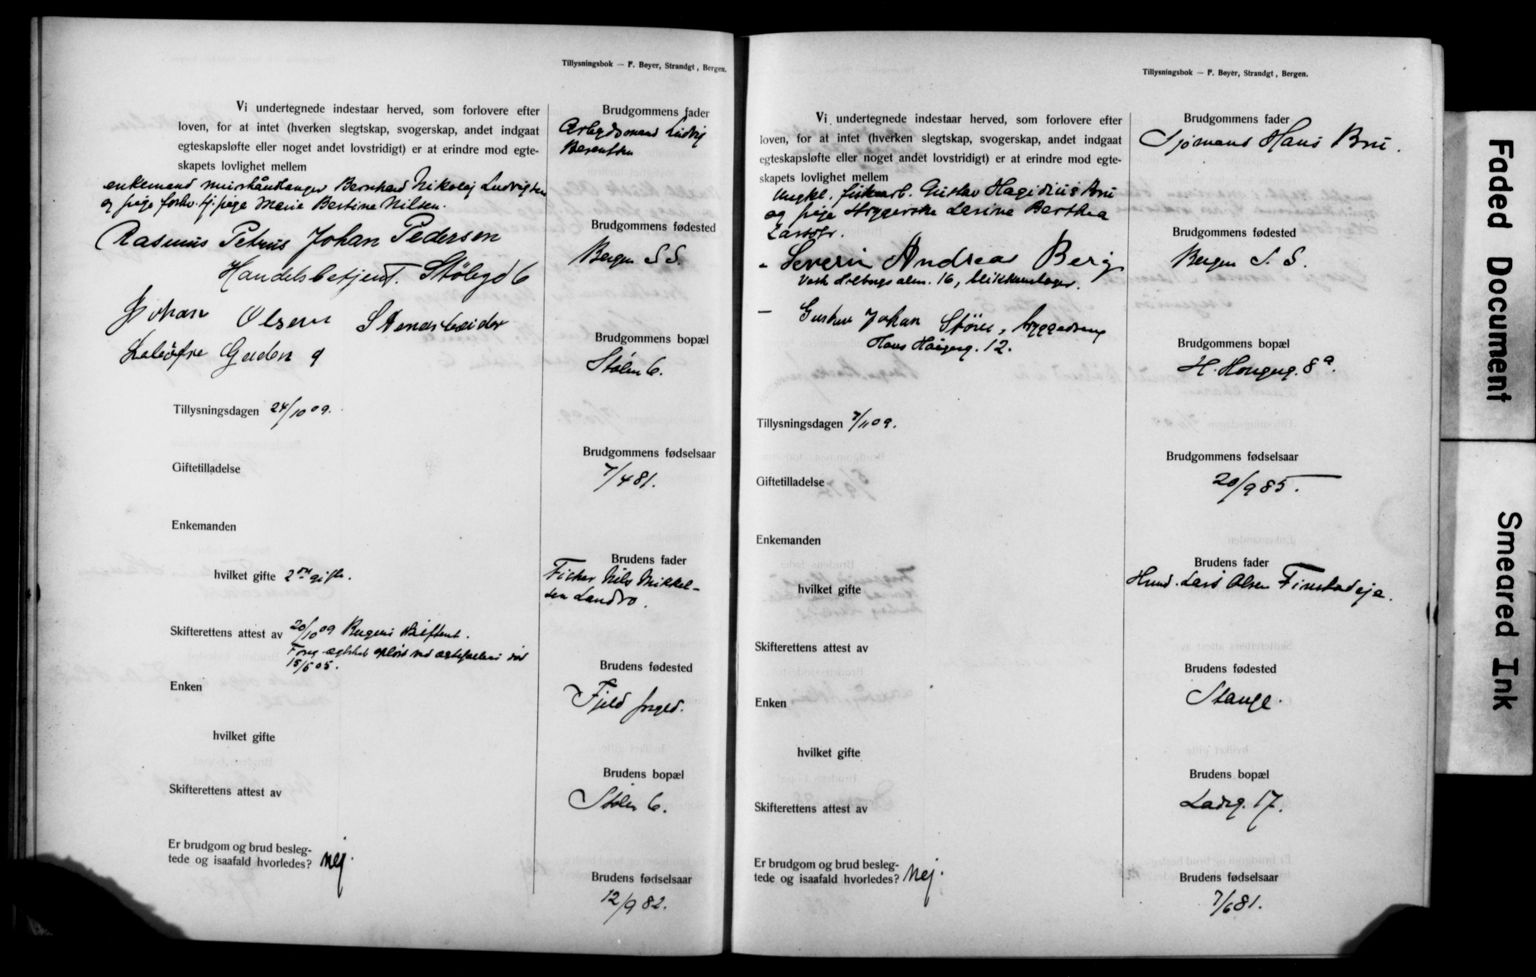 Tillysningsbok — F. Beyer, Strandgt, Bergen.
Vi undertegnede indestaar herved, som forlovere efter
loven, for at intet (hverken slegtskap, svogerskap, andet indgaat
egteskapsløfte eller noget andet lovstridigt) er at erindre mod egte-
skapets lovlighet mellem
enkemand murhåndlanger Bernhard Nikolaj Ludvigsen
og pige forhv. tj.pige Marie Bertine Nilsen.
Rasmus Petrus Johan Pedersen
Handelsbetjent. Stølegd 6
Johan Olsen Stenarbeider
Gaden 9
Tillysningsdagen 24/10 09.
Giftetilladelse
Enkemanden
hvilket gifte 2det gifte.
Skifterettens attest av 20/10 09 Bergens skifteret.
15/5 05.
Enken
hvilket gifte
Skifterettens attest av
Er brudgom og brud besleg-
tede og isaafald hvorledes? Nej.
Brudgommens fader
Arbeidsmand Ludvig
Berentsen
Brudgommens fødested
Bergen S.S.
Brudgommens bopæl
Stølen 6.
Brudgommens fødselsaar
7/4 81.
Brudens fader
Fisker Nils Mikkel-
sen Landro.
Brudens fødested
Fjeld prgjd.
Brudens bopæl
Stølen 6.
Brudens fødselsaar
12/9 82.
Tillysningsbok — F. Beyer, Strandgt, Bergen.
Vi undertegnede indestaar herved, som forlovere efter
loven, for at intet (hverken slegtskap, svogerskap, andet indgaat
egteskapsløfte eller noget andet lovstridigt) er at erindre mod egte-
skapets lovlighet mellem
Ungkl. Gustav Hagidius Bru
og pige Strygerske Lesine Berthea
Larsdtr.
- Severin Andreas Berg
alm. 16, blikkenslager.
— Gustav Johan Støre, bryggedreng
Hans Haugesg. 12.
Tillysningsdagen 7/11 09.
Giftetilladelse
Enkemanden
hvilket gifte
Skifterettens attest av
Enken
hvilket gifte
Skifterettens attest av
Er brudgom og brud besleg-
tede og isaafald hvorledes? Nej.
Brudgommens fader
Sjømand Hans Bru.
Brudgommens fødested
Bergen S. S.
Brudgommens bopæl
H. Haugesg. 8a.
Brudgommens fødselsaar
20/9 85.
Brudens fader
Husm. Lars Olsen Finstadeje.
Brudens fødested
Stange.
Brudens bopæl
Ladeg. 17.
Brudens fødselsaar
7/6 81.
Faded Document
Smeared Ink